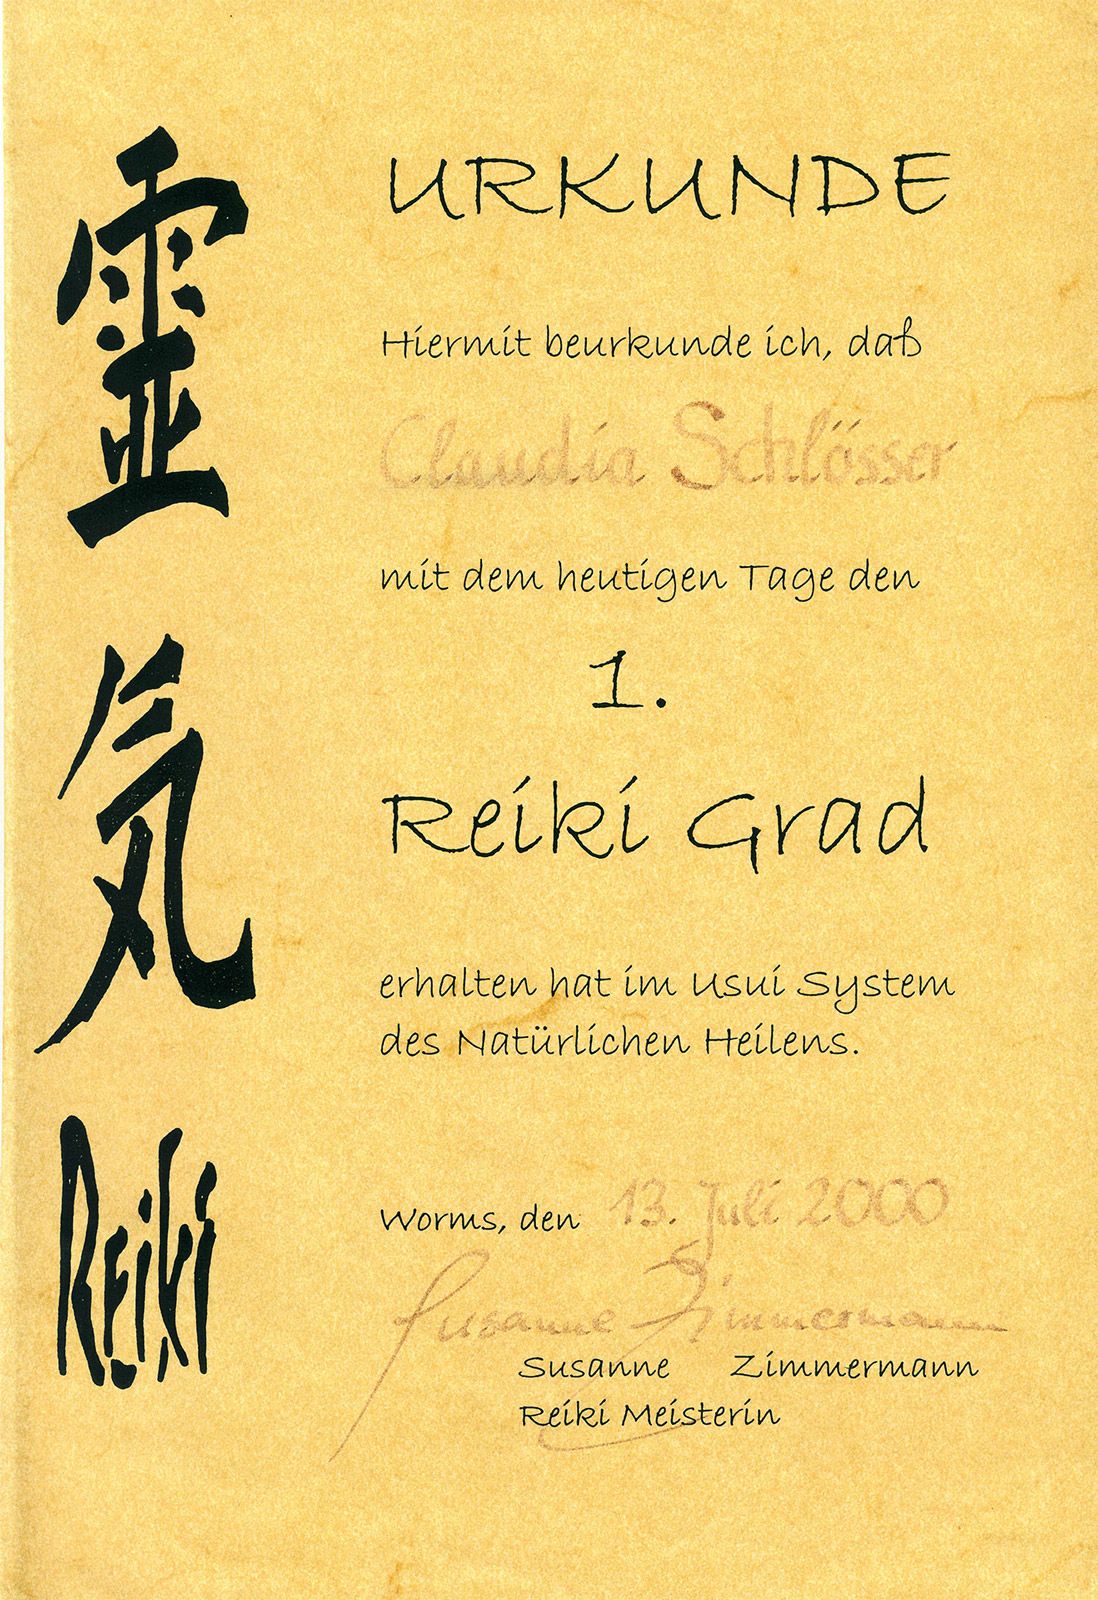 靈
気
Reiki
URKUNDE
Hiermit beurkunde ich, daß
Claudia Schlösser
mit dem heutigen Tage den
1.
Reiki Grad
erhalten hat im Usui System
des Natürlichen Heilens.
Worms, den 13. Juli 2000
Susanne Zimmermann
Susanne Zimmermann
Reiki Meisterin